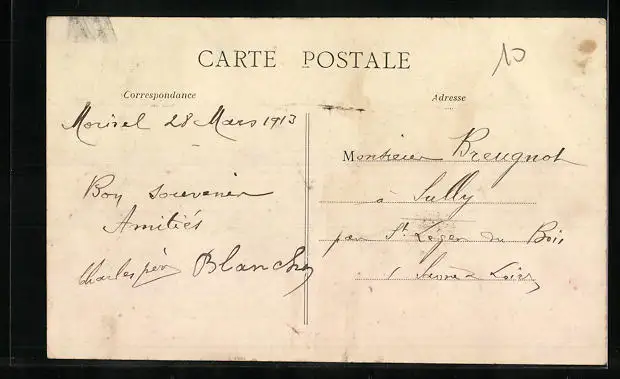 CARTE POSTALE
10
Correspondance
Adresse
28 Mars 1913
Bon souvenir
Amitiés
Charles père Blanche
Monsieur Breugnot
à Sully
par St Léger du Bois
Saône & Loire